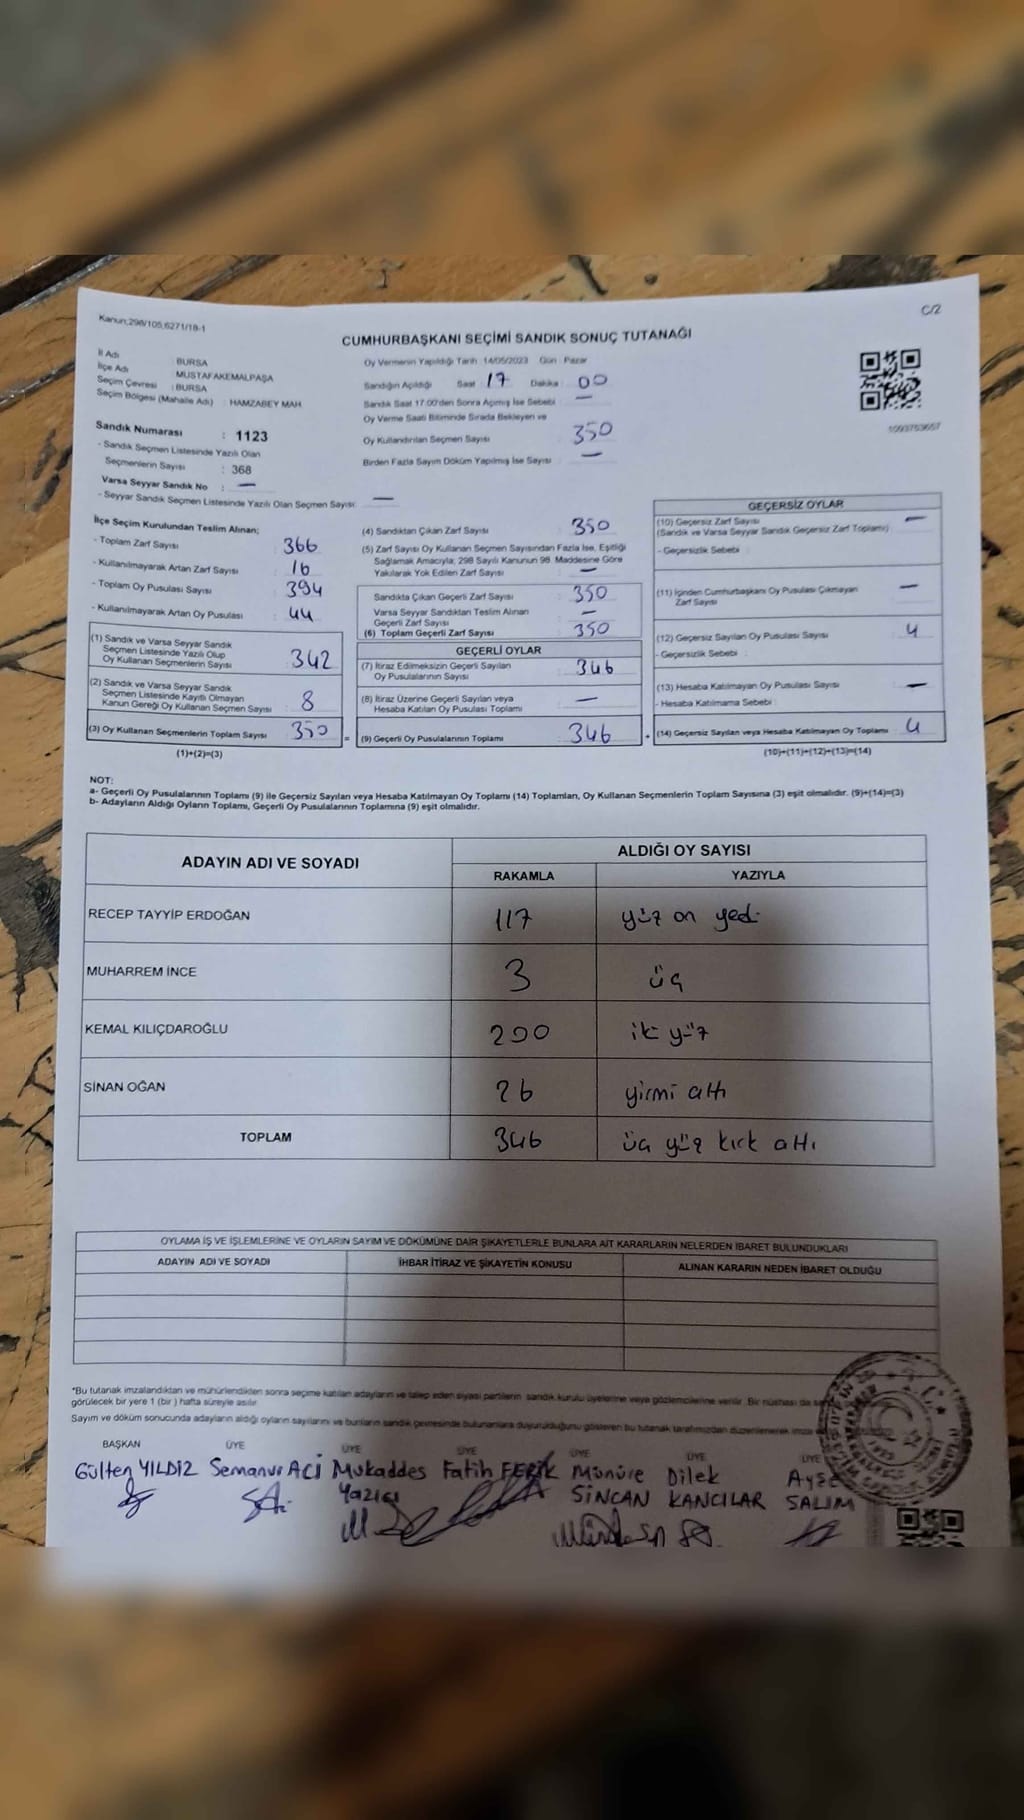 Kanun;298/105,6271/18-1
C/2
CUMHURBAŞKANI SEÇİMİ SANDIK SONUÇ TUTANAĞI
İl Adı : BURSA
İlçe Adı MUSTAFAKEMALPAŞA
Seçim Çevresi : BURSA
Seçim Bölgesi (Mahalle Adı) : HAMZABEY MAH.
Oy Vermenin Yapıldığı Tarih 14/05/2023 Gün : Pazar
Sandığın Açıldığı Saat : 17 Dakika : 00
Sandık Saat 17:00'den Sonra Açılmış İse Sebebi : —
Oy Verme Saati Bitiminde Sırada Bekleyen ve
Oy Kullandırılan Seçmen Sayısı 350
Birden Fazla Sayım Döküm Yapılmış İse Sayısı —
1093753657
Sandık Numarası : 1123
- Sandık Seçmen Listesinde Yazılı Olan
Seçmenlerin Sayısı : 368
Varsa Seyyar Sandık No : —
- Seyyar Sandık Seçmen Listesinde Yazılı Olan Seçmen Sayısı: —
İlçe Seçim Kurulundan Teslim Alınan;
- Toplam Zarf Sayısı : 366
- Kullanılmayarak Artan Zarf Sayısı : 16
- Toplam Oy Pusulası Sayısı : 394
- Kullanılmayarak Artan Oy Pusulası : 44
(1) Sandık ve Varsa Seyyar Sandık
Seçmen Listesinde Yazılı Olup
Oy Kullanan Seçmenlerin Sayısı 342
(2) Sandık ve Varsa Seyyar Sandık
Seçmen Listesinde Kayıtlı Olmayan
Kanun Gereği Oy Kullanan Seçmen Sayısı 8
(3) Oy Kullanan Seçmenlerin Toplam Sayısı 350 =
(1)+(2)=(3)
(4) Sandıktan Çıkan Zarf Sayısı 350
(5) Zarf Sayısı Oy Kullanan Seçmen Sayısından Fazla İse, Eşitliği
Sağlamak Amacıyla, 298 Sayılı Kanunun 98. Maddesine Göre
Yakılarak Yok Edilen Zarf Sayısı —
Sandıkta Çıkan Geçerli Zarf Sayısı : 350
Varsa Seyyar Sandıktan Teslim Alınan
Geçerli Zarf Sayısı : —
(6) Toplam Geçerli Zarf Sayısı 350
GEÇERLİ OYLAR
(7) İtiraz Edilmeksizin Geçerli Sayılan
Oy Pusulalarının Sayısı 346
(8) İtiraz Üzerine Geçerli Sayılan veya
Hesaba Katılan Oy Pusulası Toplamı —
(9) Geçerli Oy Pusulalarının Toplamı 346 +
GEÇERSİZ OYLAR
(10) Geçersiz Zarf Sayısı —
(Sandık ve Varsa Seyyar Sandık Geçersiz Zarf Toplamı)
- Geçersizlik Sebebi :
(11) İçinden Cumhurbaşkanı Oy Pusulası Çıkmayan
Zarf Sayısı —
(12) Geçersiz Sayılan Oy Pusulası Sayısı 4
- Geçersizlik Sebebi :
(13) Hesaba Katılmayan Oy Pusulası Sayısı —
- Hesaba Katılmama Sebebi :
(14) Geçersiz Sayılan veya Hesaba Katılmayan Oy Toplamı 4
(10)+(11)+(12)+(13)=(14)
NOT:
a- Geçerli Oy Pusulalarının Toplamı (9) ile Geçersiz Sayılan veya Hesaba Katılmayan Oy Toplamı (14) Toplamları, Oy Kullanan Seçmenlerin Toplam Sayısına (3) eşit olmalıdır. (9)+(14)=(3)
b- Adayların Aldığı Oyların Toplamı, Geçerli Oy Pusulalarının Toplamına (9) eşit olmalıdır.
ADAYIN ADI VE SOYADI ALDIĞI OY SAYISI
RAKAMLA YAZIYLA
RECEP TAYYİP ERDOĞAN 117 yüz on yedi
MUHARREM İNCE 3 üç
KEMAL KILIÇDAROĞLU 200 iki yüz
SİNAN OĞAN 26 yirmi altı
TOPLAM 346 üç yüz kırk altı
OYLAMA İŞ VE İŞLEMLERİNE VE OYLARIN SAYIM VE DÖKÜMÜNE DAİR ŞİKAYETLERLE BUNLARA AİT KARARLARIN NELERDEN İBARET BULUNDUKLARI
ADAYIN ADI VE SOYADI İHBAR İTİRAZ VE ŞİKAYETİN KONUSU ALINAN KARARIN NEDEN İBARET OLDUĞU
*Bu tutanak imzalandıktan ve mühürlendikten sonra seçime katılan adayların ve talep eden siyasi partilerin sandık kurulu üyelerine veya gözlemcilerine verilir. Bir nüshası da
görülecek bir yere 1 (bir) hafta süreyle asılır.
Sayım ve döküm sonucunda adayların aldığı oyların sayılarını ve bunların sandık çevresinde bulunanlara duyurulduğunu gösteren bu tutanak tarafımızdan düzenlenerek imza
BAŞKAN ÜYE ÜYE ÜYE ÜYE ÜYE ÜYE
Gülten YILDIZ Semanur ACI Mukaddes Fatih FERİK Münüre Dilek Ayşe
Yazıcı SİNCAN KANCILAR SALIM